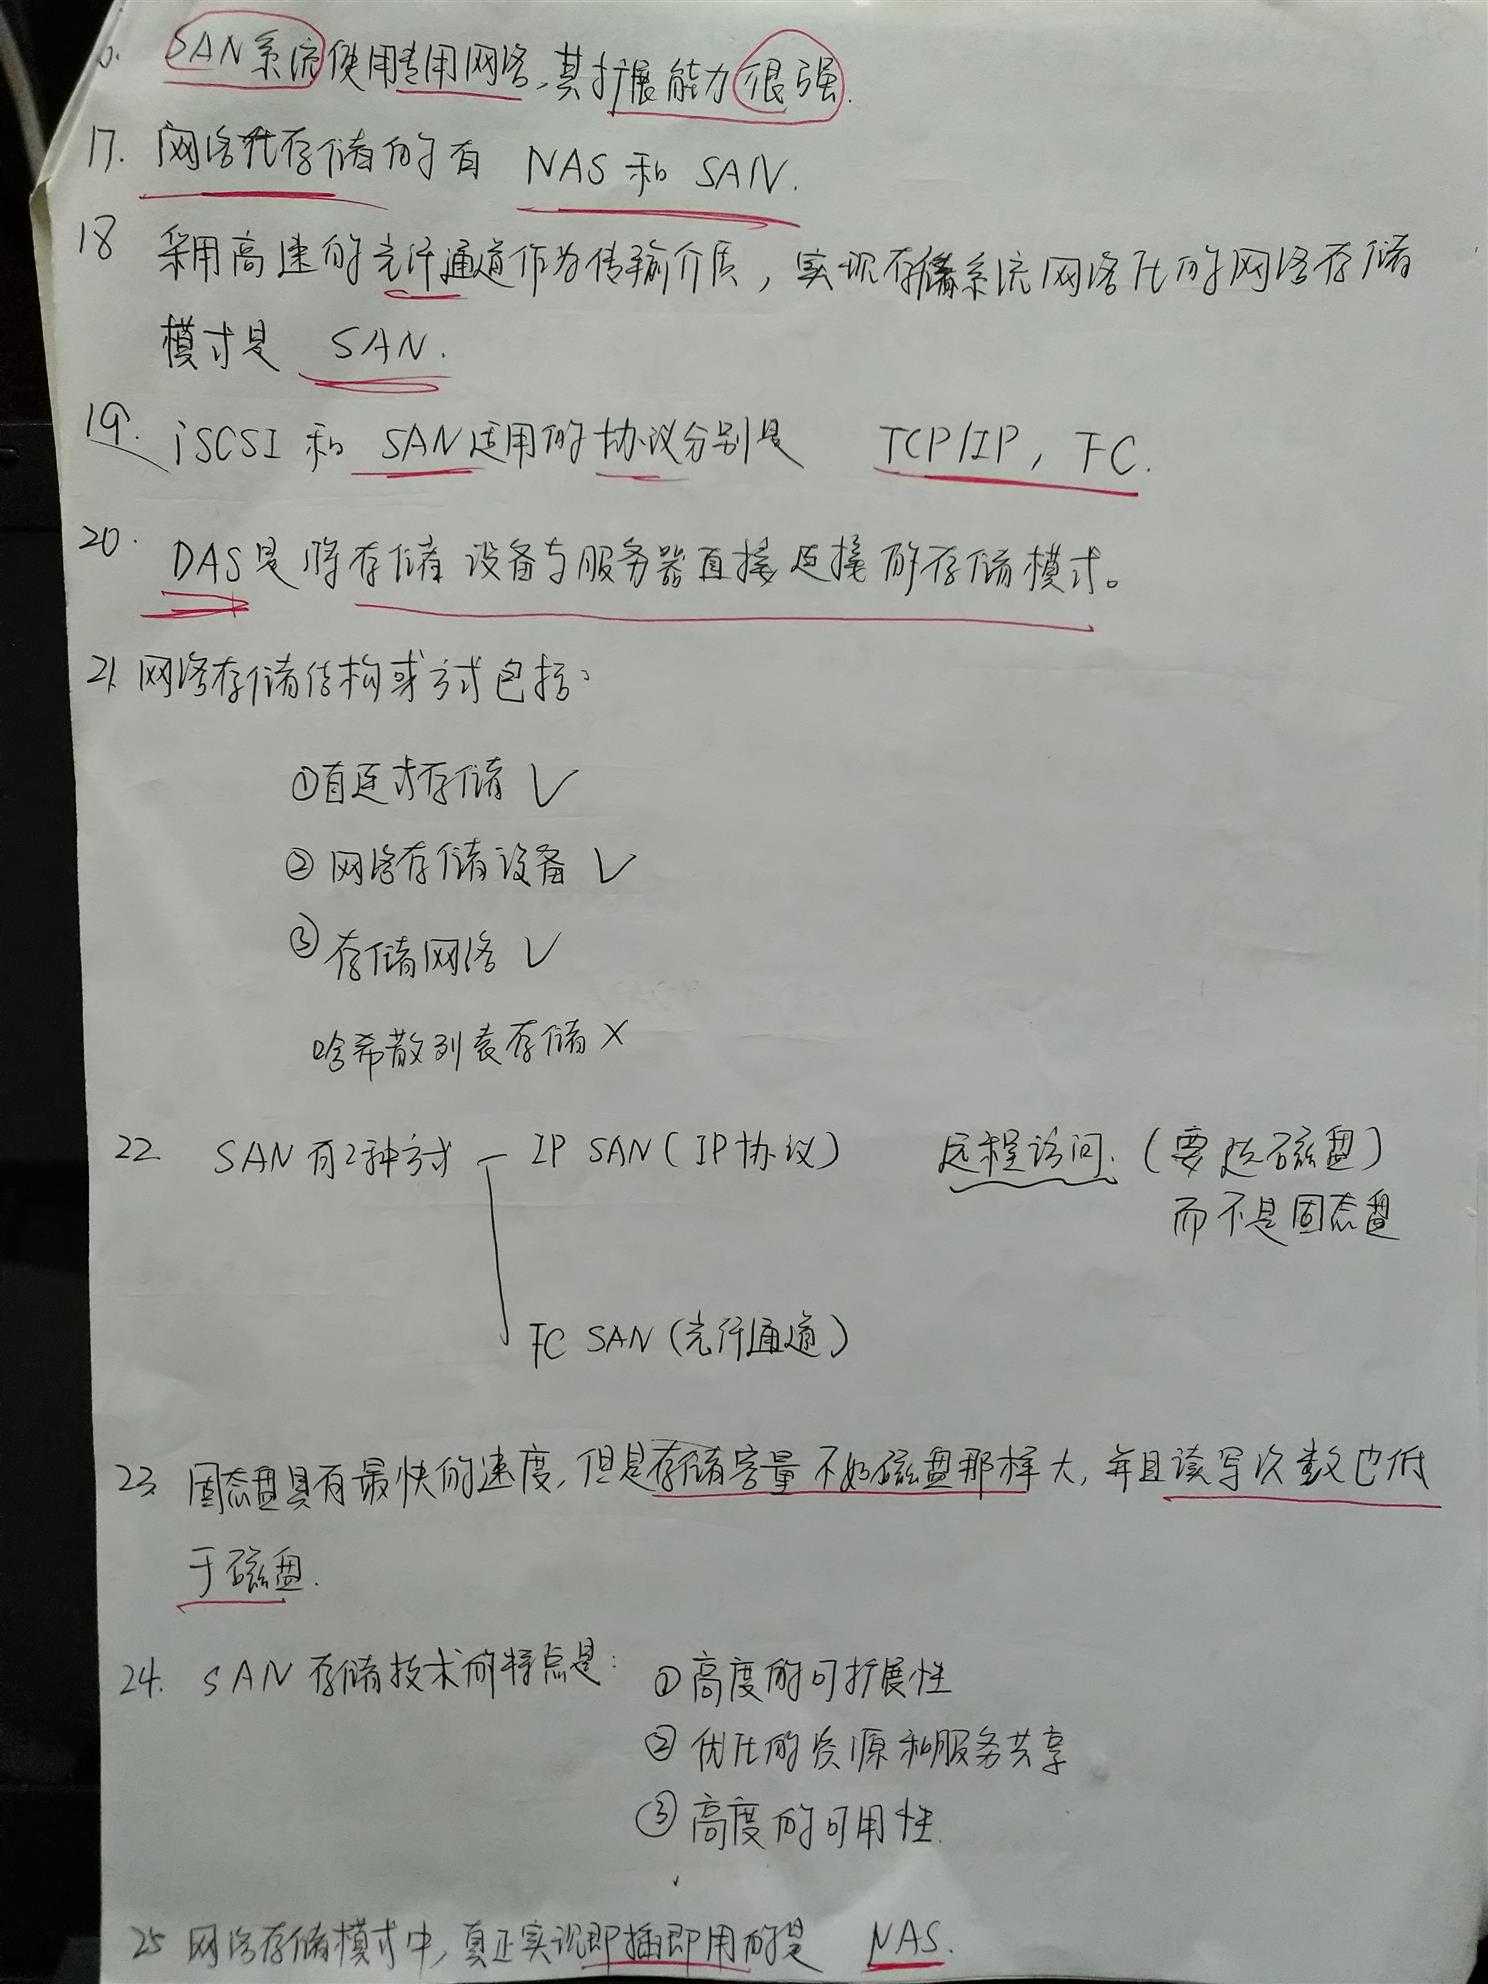 SAN系统使用专用网络,其扩展能力很强.
17. 网络化存储的有 NAS 和 SAN.
18 采用高速的光纤通道作为传输介质,实现存储系统网络化的网络存储
模式是 SAN.
19. iSCSI 和 SAN 适用的协议分别是 TCP/IP, FC.
20. DAS是将存储设备与服务器直接连接的存储模式。
21 网络存储结构或方式包括:
①直连式存储 ✓
② 网络存储设备 ✓
③ 存储网络 ✓
哈希散列表存储 ×
22 SAN有2种方式 IP SAN (IP协议) 远程访问. (要选磁盘)
而不是固态盘
FC SAN (光纤通道)
23 固态盘具有最快的速度, 但是存储容量不如磁盘那样大, 并且读写次数也低
于磁盘.
24. SAN 存储技术的特点是: ①高度的可扩展性
② 优化的资源和服务共享
③ 高度的可用性.
25 网络存储模式中, 真正实现即插即用的是 NAS.